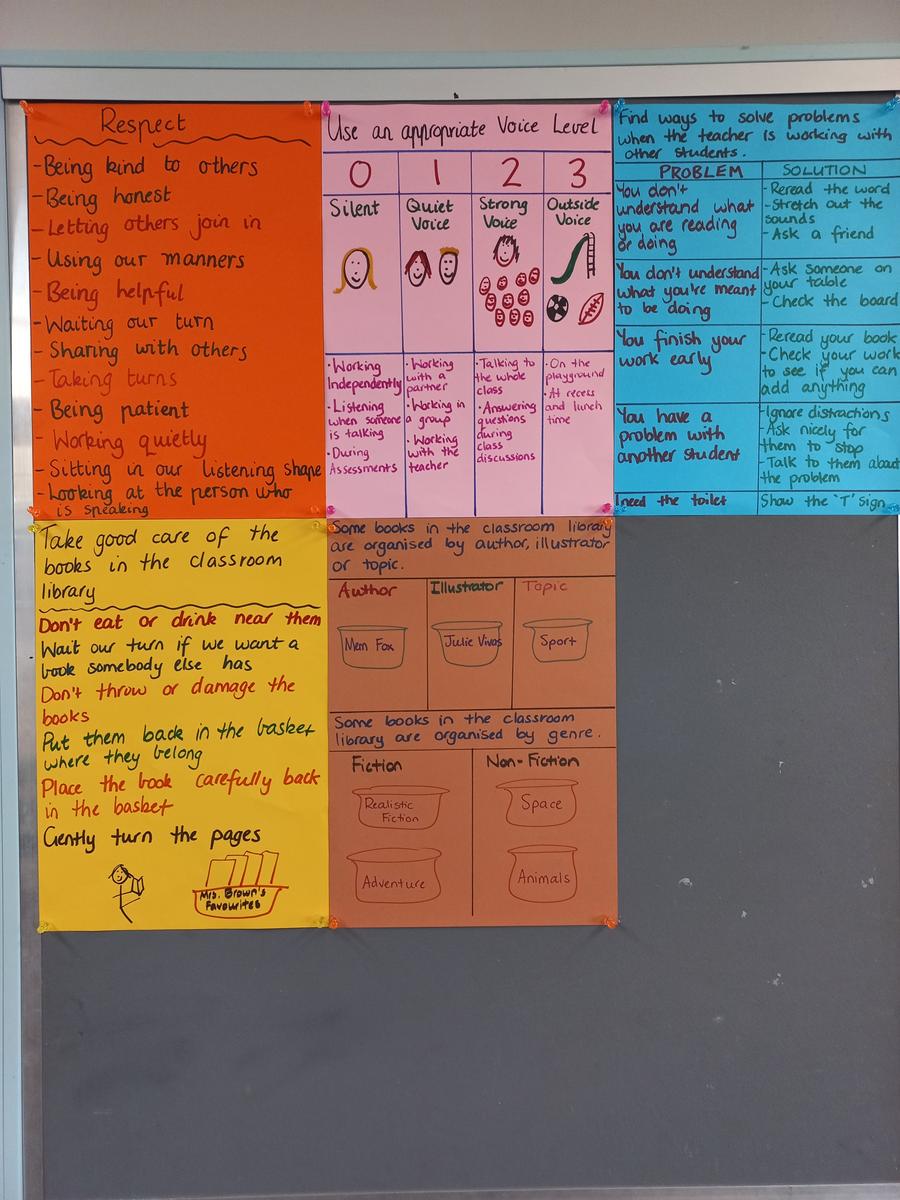 Respect
-Being kind to others
-Being honest
-Letting others join in
-Using our manners
-Being helpful
-Waiting our turn
-Sharing with others
-Taking turns
-Being patient
-Working quietly
-Sitting in our listening shape
-Looking at the person who
is speaking
Use an appropriate Voice Level
0
Silent
·Working
Independently
·Listening
when someone
is talking
·During
Assessments
1
Quiet
Voice
·Working
with a
partner
·Working in
a group
·Working
with the
teacher
2
Strong
Voice
·Talking to
the whole
class
·Answering
questions
during
class
discussions
3
Outside
Voice
·On the
playground
·At recess
and lunch
time
Find ways to solve problems
when the teacher is working with
other students.
PROBLEM
SOLUTION
You don't
understand what
you are reading
or doing
-Reread the word
-Stretch out the
sounds
-Ask a friend
You don't understand
what you're meant
to be doing
-Ask someone on
your table
-Check the board
You finish your
work early
-Reread your book
-Check your work
to see if you can
add anything
You have a
problem with
another student
-Ignore distractions
-Ask nicely for
them to stop
-Talk to them about
the problem
I need the toilet
Show the 'T' sign
Take good care of the
books in the classroom
library
Don't eat or drink near them
Wait our turn if we want a
book somebody else has
Don't throw or damage the
books
Put them back in the basket
where they belong
Place the book carefully back
in the basket
Gently turn the pages
Mrs. Brown's
Favourites
Some books in the classroom library
are organised by author, illustrator
or topic.
Author
Mem Fox
Illustrator
Julie Vivas
Topic
Sport
Some books in the classroom
library are organised by genre.
Fiction
Realistic
Fiction
Adventure
Non-Fiction
Space
Animals